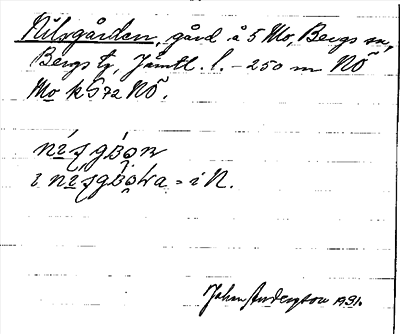 Nilsgården, gård å 5 Mo, Bergs sn,
Bergs tg, Jämtl. l. - 250 m NÖ
Mo k S 72 NÖ.
i = i N.
Johan Anderson 1931.